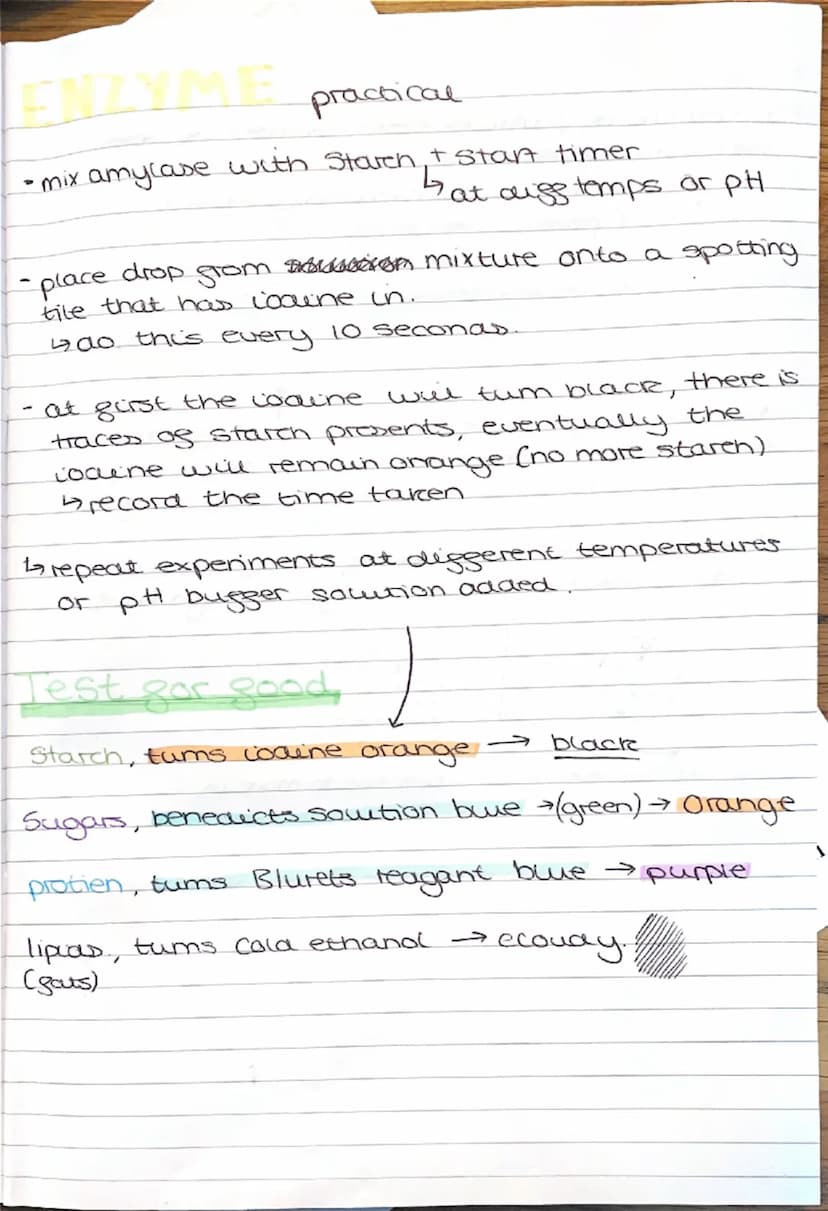 ENZYME practical
- mix amylase with Starch + Start timer
↳ at diff temps or pH
- place drop from mixture onto a spotting
tile that has iodine in.
↳ do this every 10 seconds.
- at first the iodine will turn black, there is
traces of starch presents, eventually the
iodine will remain orange (no more starch)
↳ record the time taken
↳ repeat experiments at different temperatures
or pH buffer solution added.
Test for food
Starch, turns iodine orange → black
Sugars, benedicts solution blue → (green) → Orange
protien, turns Biurets reagant blue → purple
lipids, turns Cold ethanol → cloudy.
(fats)